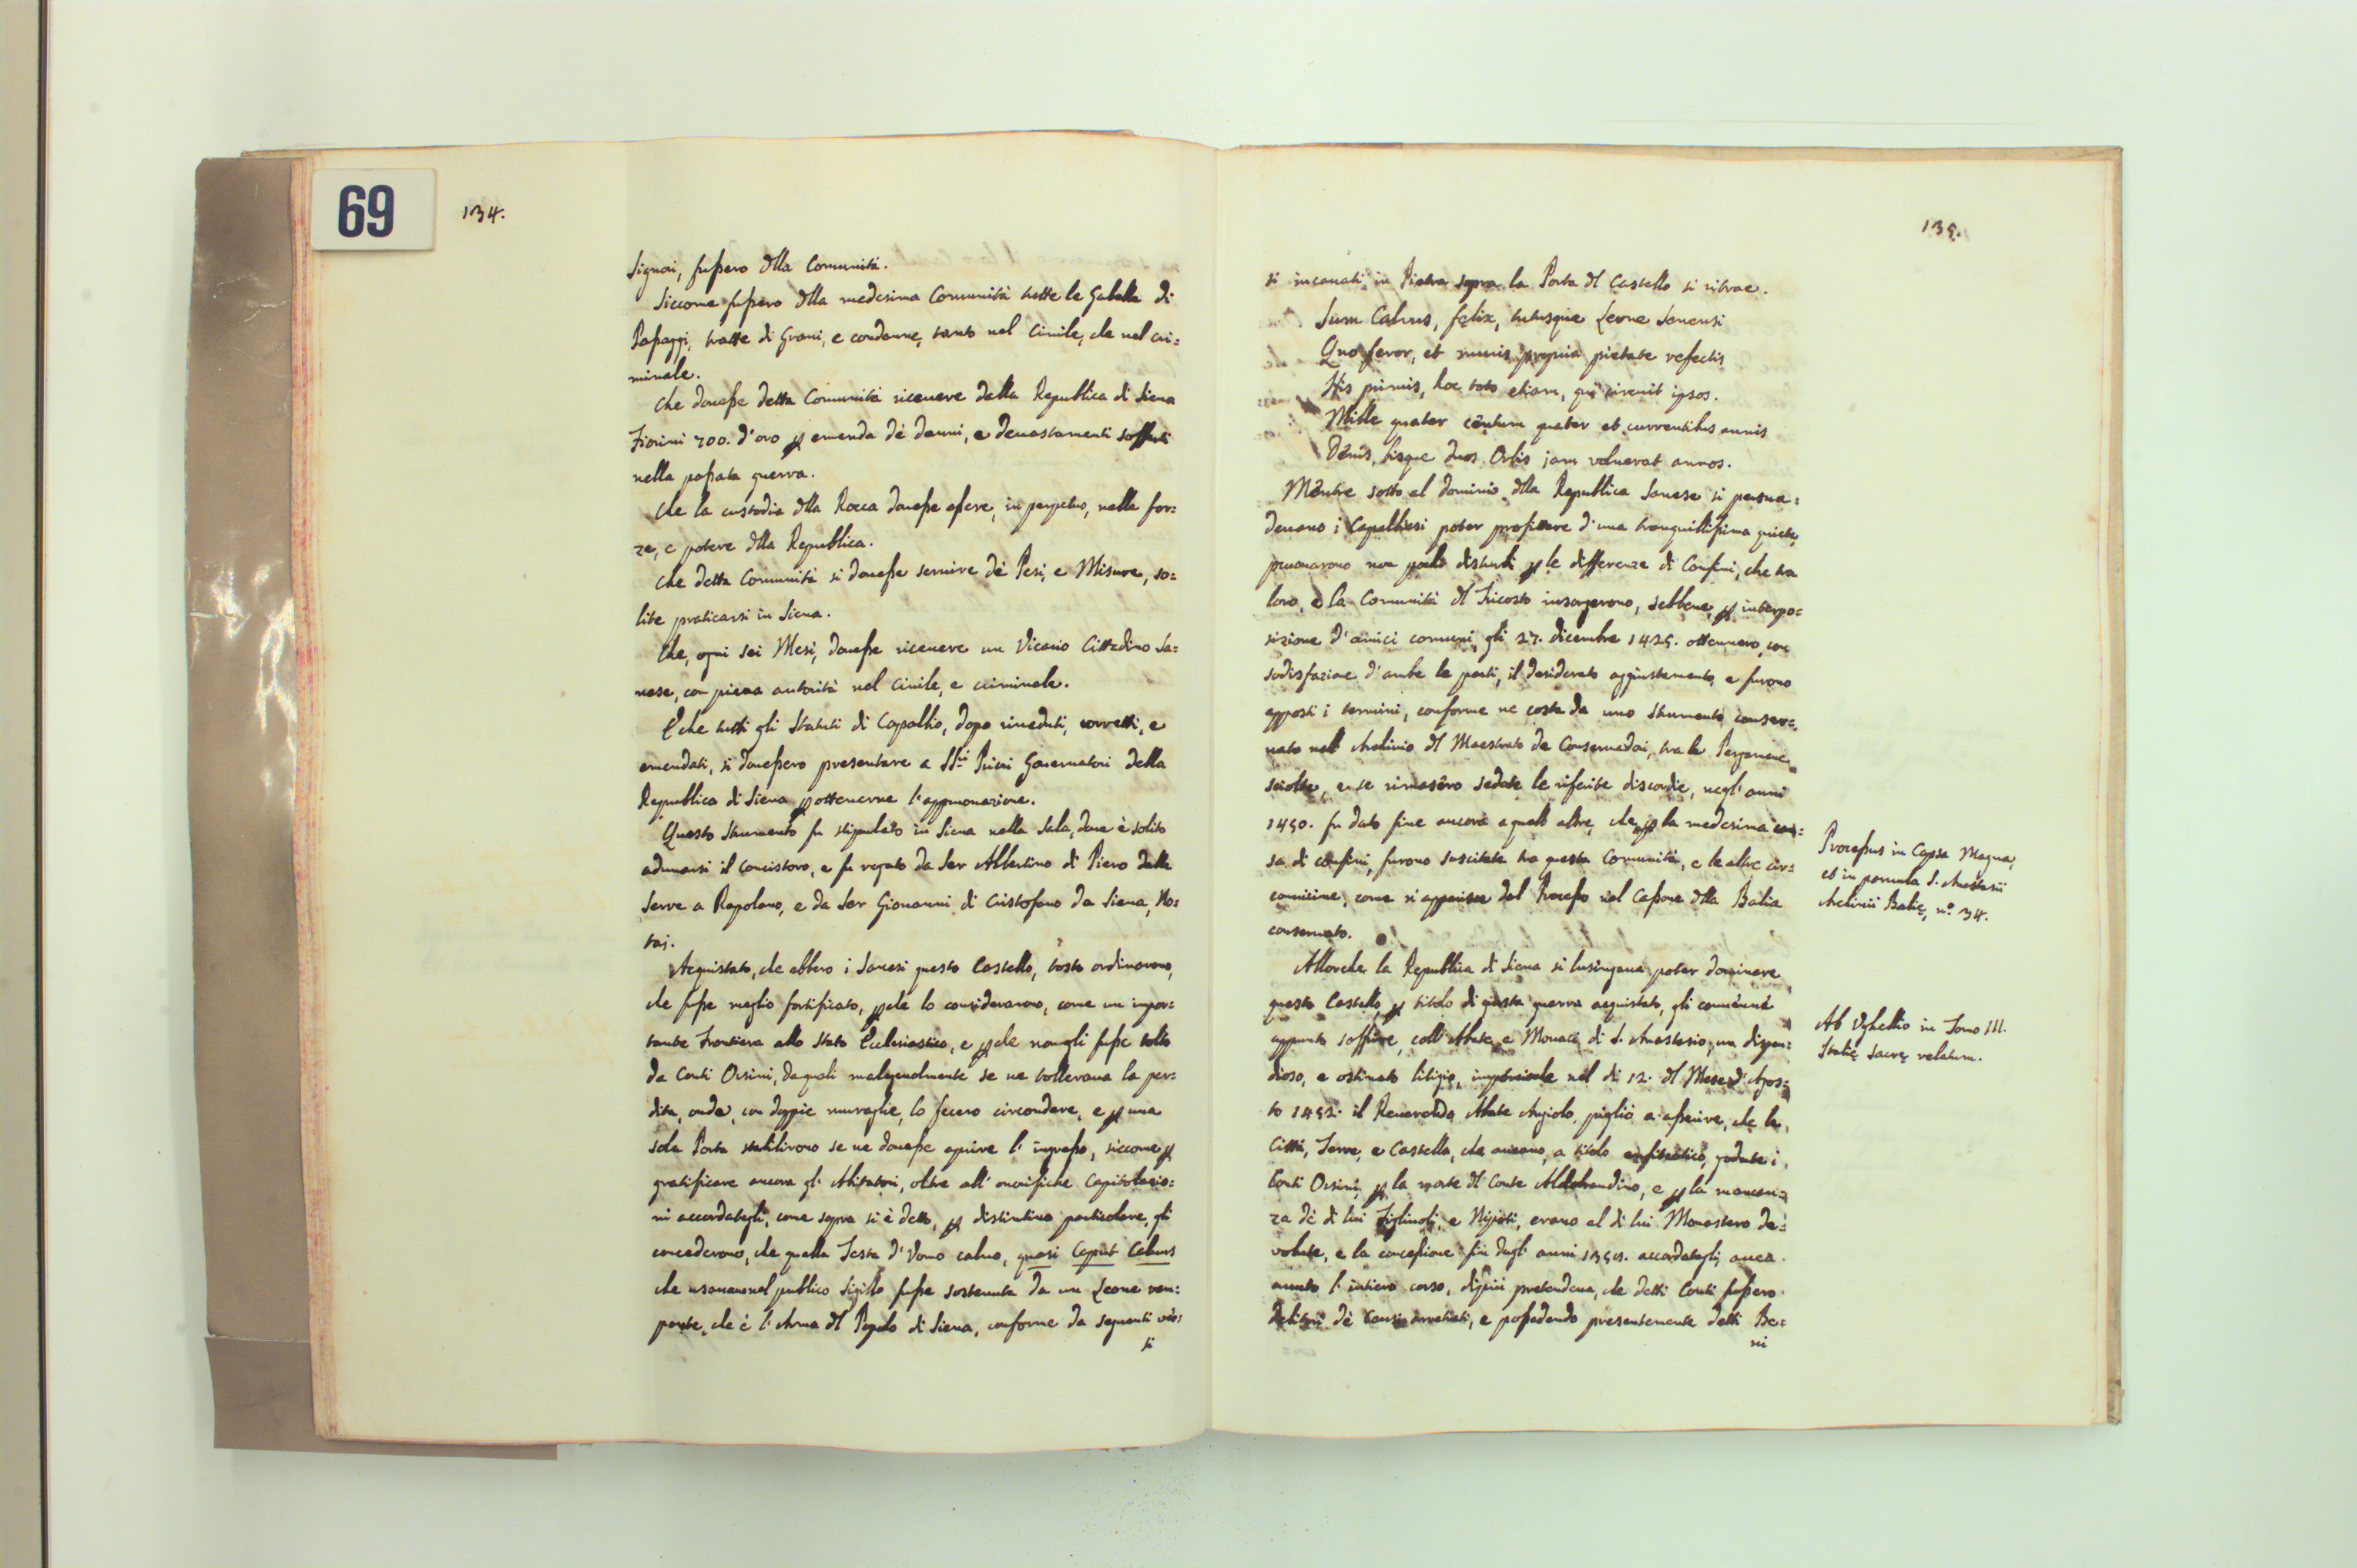 69
134.
Signori, fussero della Comunità.
Siccome fussero della medesima Comunità tutte le Gabelle di
Passaggi, tratte di Grani, e condanne, tanto nel Civile, che nel cri=
minale.
Che dovesse detta Comunità ricevere dalla Republica di Siena
Fiorini 700. d'oro per emenda dè danni, e devastamenti sofferti
nella passata guerra.
Che la custodia della Rocca dovesse essere, in perpetuo, nelle for=
ze, e potere della Republica.
Che detta Comunità si dovesse servire dè Pesi, e Misure, so=
lite praticarsi in Siena.
Che, ogni sei Mesi, dovesse ricevere un Vicario Cittadino Sa=
nese, con piena autorità nel Civile, e criminale.
E che tutti gli Statuti di Capalbio, dopo riveduti, corretti, e
emendati, si dovessero presentare a SSri Priori Governatori della
Republica di Siena per ottenerne l'approvazione.
Questo Strumento fu stipulato in Siena nella Sala, dove è solito
adunarsi il Concistoro, e fu rogato da Ser Albertino di Piero dalle
Serre a Rapolano, e da Ser Giovanni di Cristofano da Siena, No=
taj.
Acquistato, che ebbero i Sanesi questo Castello, tosto ordinarono,
che fusse meglio fortificato, perche lo consideravano, come un impor=
tante Frontiera allo Stato Ecclesiastico, e perche non gli fusse tolto
da Conti Orsini, da quali malvolentemente se ne tollerava la per=
dita, onde, con doppie muraglie, lo fecero circondare, e per una
sola Porta stabilirono se ne dovesse aprire l'ingresso, siccome per
gratificare ancora gl'Abitatori, oltre all'onorifiche Capitolazio=
ni accordategli, come sopra si è detto, per distintivo particolare, gli
concederono, che quella Testa d'Uomo calvo, quasi Caput Calvus
che usavano nel publico Sigillo fusse sostenuta da un Leone ram=
pante, che è l'Arma del Popolo di Siena, conforme da seguenti vèr=
si
135.
si incavati, in Pietra sopra la Porta del Castello si ritrae.
Sum Calvus, felix, tutusque Leone Senensi
Quo feror, et muris propria pietate refectis
His primis, hoc toto etiam, qui circuit ipsos.
Mille quater centum quater et currentibus annis
Denis, bisque duos Orbis jam volverat annos.
Mentre sotto al dominio della Republica Sanese si persua=
devano i Capalbiesi poter profittare d'una tranquillissima quiete,
provarono non pochi disturbi per le differenze di Confini, che tra
loro, e la Comunità del Tricosto insorgerono, sebbene, per interpo=
sizione d'amici comuni, gli 27. dicembre 1425. ottennero, con
sodisfazione d'ambe le parti, il desiderato aggiustamento, e furono
apposti i termini, conforme ne costa da uno Strumento conser=
vato nell'Archivio del Maestrato de Conservadori, tra le Pergamene
sciolte, e se rimasero sedate le riferite discordie, negl'anni
1450. fu dato fine ancora a quell'altre, che per la medesima cau=
sa di confini, furono suscitate tra questa Comunità, e le altre cir=
convicine, come n'apparisce dal Processo nel Cassone della Balia
conservato.
Allorche la Republica di Siena si lusingava poter dominare
questo Castello, per titolo di giusta guerra acquistato, gli convenne
appunto soffrire, coll'Abate e Monaci di S. Anastasio, un dispen=
dioso, e ostinato litigio, imperciocche nel di 12. del Mese d'Agos=
to 1452. il Reverendo Abate Angiolo, pigliò a asserire, che le
Città, Terre, e Castella, che avevano, a titolo enfiteotico, godute i
Conti Orsini, per la morte del Conte Aldobrandino, e per la mancan=
za dè di lui Figliuoli, e Nipoti, erano al di lui Monastero de=
volute, e la concessione fin dagl'anni 1358. accordategli, avea
avuto l'intiero corso, di più pretendeva, che detti Conti fussero
debitori dè Canoni arretrati, e possedendo presentemente detti Be=
ni
Processus in Capsa Magna,
et in parvula S. Anastasii
Archivii Balię, n.o 34.
Ab Ughellio in Tomo III.
Italię Sacrę relatum.